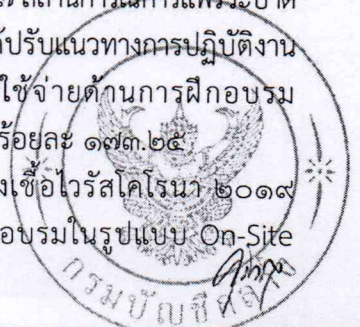 สถานการณ์การแพร่ระบาด
ปรับแนวทางการปฏิบัติงาน
ใช้จ่ายด้านการฝึกอบรม
ร้อยละ ๑๗๓.๒๕
เชื้อไวรัสโคโรนา ๒๐๑๙
อบรมในรูปแบบ On-Site
กรมบัญชีกลาง